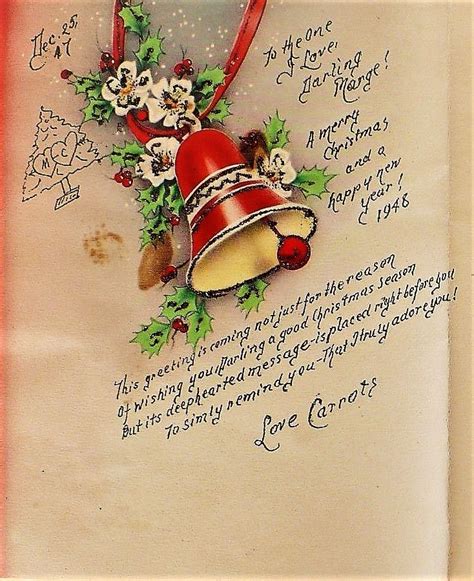 Dec. 25,
'47
To the One
I Love,
Darling
Marge!
A merry
Christmas
and a
happy new
year!
1948
M C
This greeting is coming not just for the reason
Of wishing you, Darling a good Christmas season
But its deephearted message-is placed right before you
To simly remind you-That I truly adore you!
Love Carrots